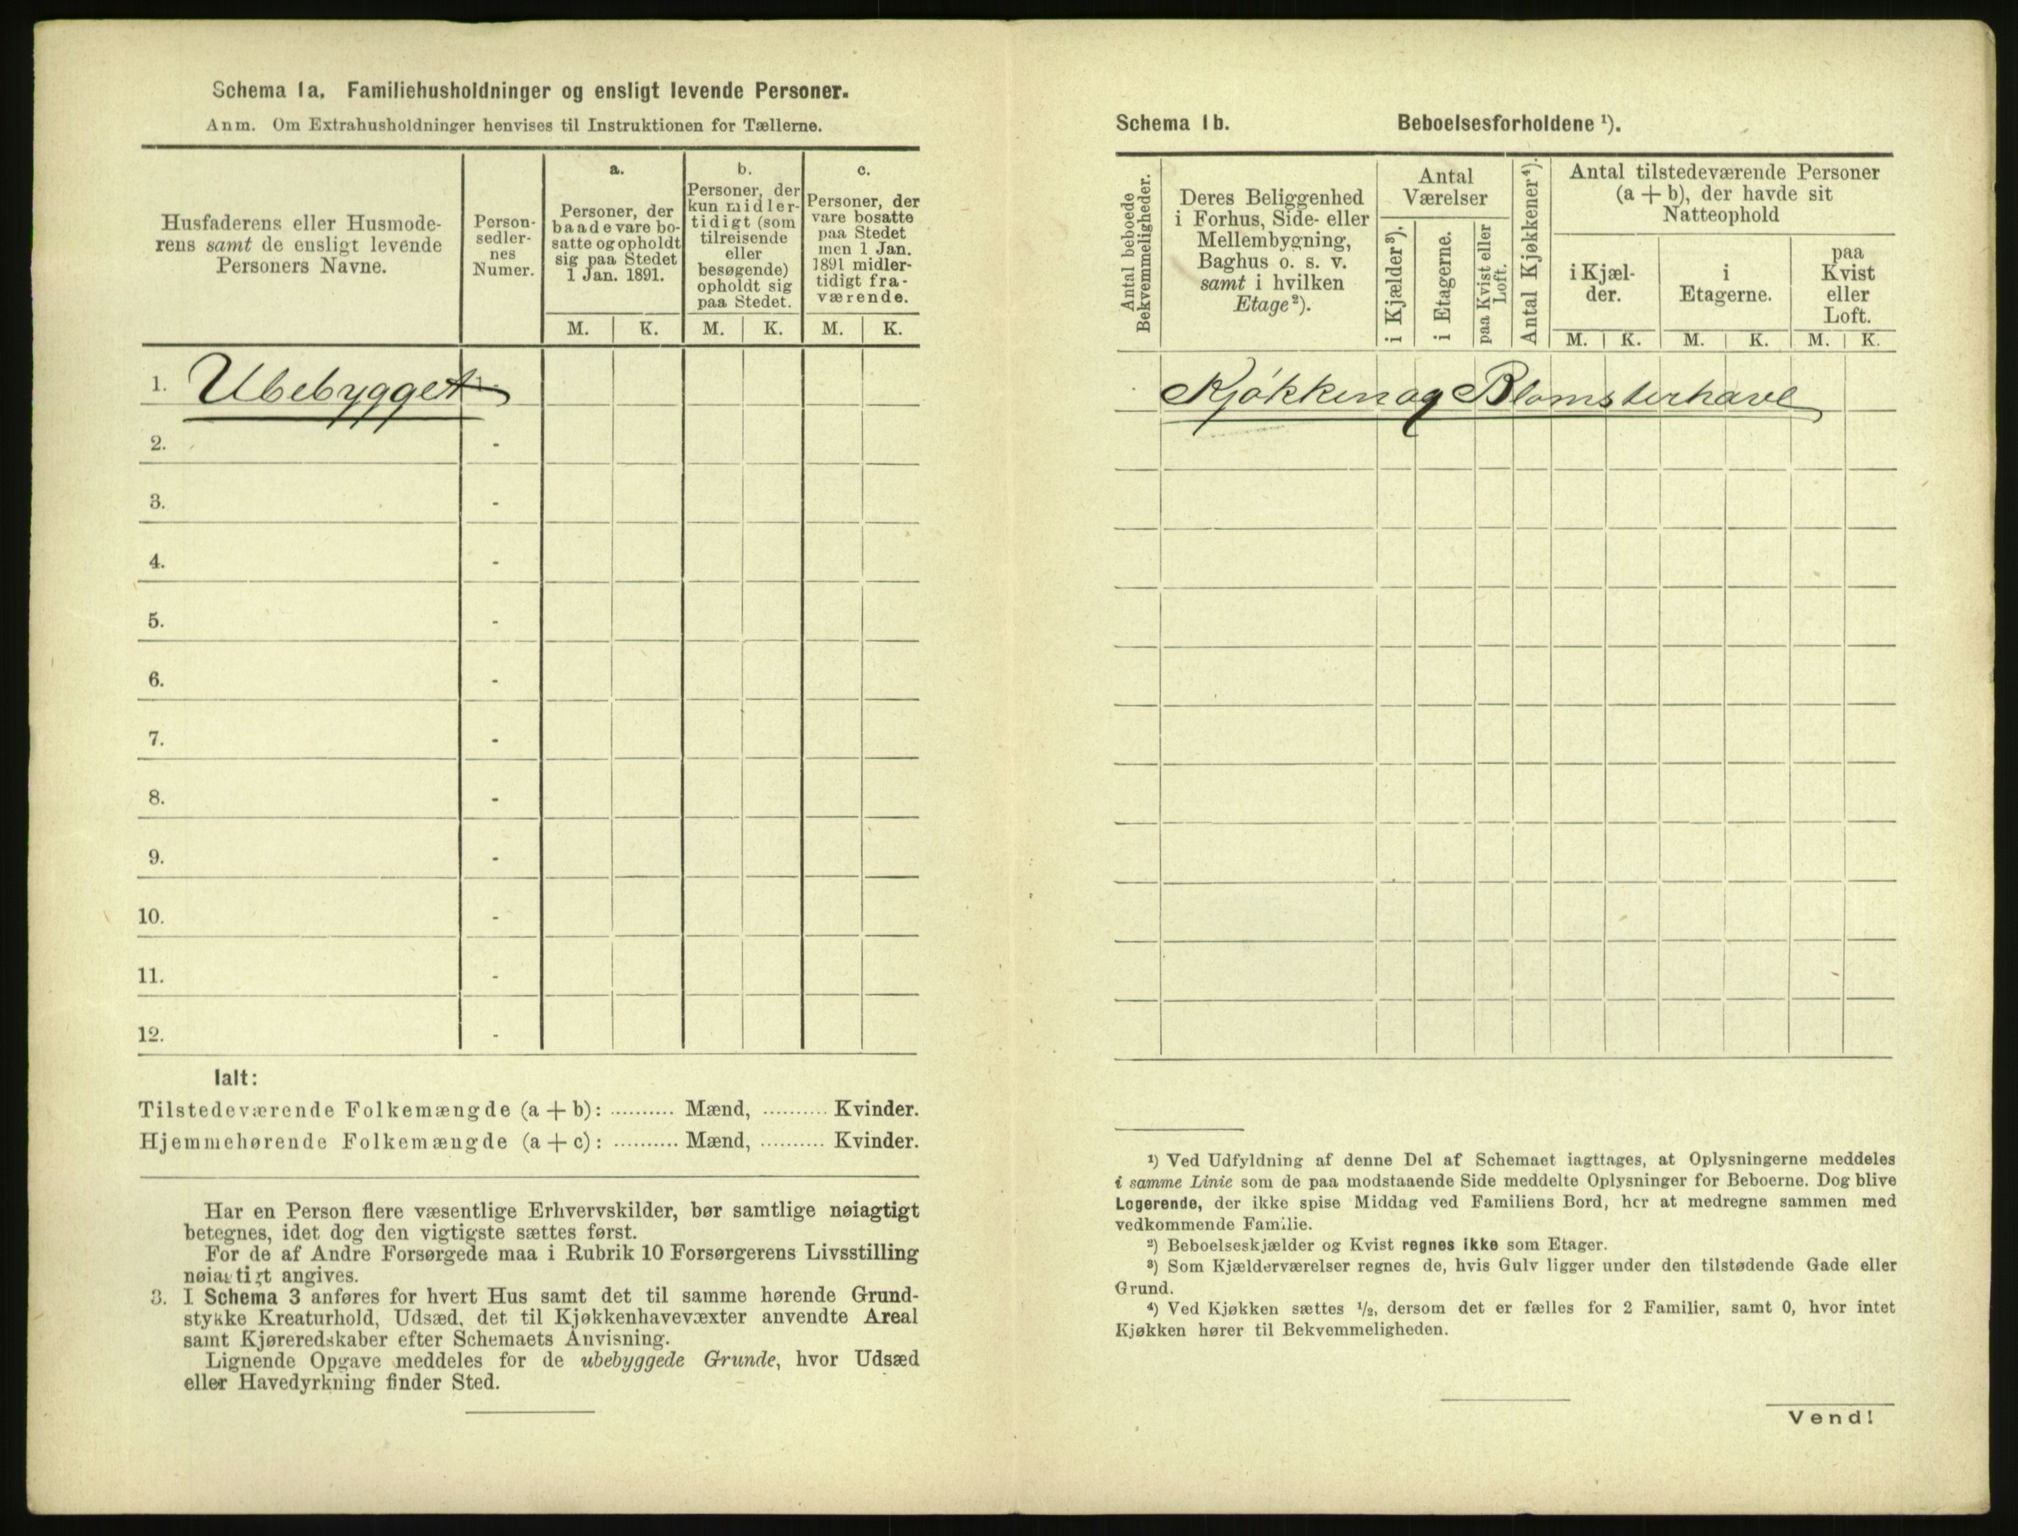 Schema 1a. Familiehusholdninger og ensligt levende Personer.
Anm. Om Extrahusholdninger henvises til Instruktionen for Tællerne.
Husfaderens eller Husmode-
rens samt de ensligt levende
Personers Navne.
Person-
sedler-
nes
Numer.
a.
Personer, der
baade vare bo-
satte og opholdt
sig paa Stedet
1 Jan. 1891.
b.
Personer, der
kun midler-
tidigt (som
tilreisende
eller
besøgende)
opholdt sig
paa Stedet.
c.
Personer, der
vare bosatte
paa Stedet
men 1 Jan.
1891 midler-
tidigt fra-
værende.
M. K. M. K. M. K.
1. Ubebygget
2. -
3. -
4. -
5. -
6. -
7. -
8. -
9. -
10. -
11. -
12. -
Ialt:
Tilstedeværende Folkemængde (a + b): .......... Mænd, .......... Kvinder.
Hjemmehørende Folkemængde (a + c): .......... Mænd, .......... Kvinder.
Har en Person flere væsentlige Erhvervskilder, bør samtlige nøiagtigt
betegnes, idet dog den vigtigste sættes først.
For de af Andre Forsørgede maa i Rubrik 10 Forsørgerens Livsstilling
nøiagtigt angives.
3. I Schema 3 anføres for hvert Hus samt det til samme hørende Grund-
stykke Kreaturhold, Udsæd, det til Kjøkkenhavevæxter anvendte Areal
samt Kjøreredskaber efter Schemaets Anvisning.
Lignende Opgave meddeles for de ubebyggede Grunde, hvor Udsæd
eller Havedyrkning finder Sted.
Schema 1b. Beboelsesforholdene ¹).
Antal beboede
Bekvemmeligheder.
Deres Beliggenhed
i Forhus, Side- eller
Mellembygning,
Baghus o. s. v.
samt i hvilken
Etage²).
Antal
Værelser
i Kjælder³).
i Etagerne.
paa Kvist eller
Loft.
Antal Kjøkkener⁴).
Antal tilstedeværende Personer
(a + b), der havde sit
Natteophold
i Kjæl-
der.
i
Etagerne.
paa
Kvist
eller
Loft.
M. K. M. K. M. K.
Kjøkken og Blomsterhave
¹) Ved Udfyldning af denne Del af Schemaet iagttages, at Oplysningerne meddeles
i samme Linie som de paa modstaaende Side meddelte Oplysninger for Beboerne. Dog blive
Logerende, der ikke spise Middag ved Familiens Bord, her at medregne sammen med
vedkommende Familie.
²) Beboelseskjælder og Kvist regnes ikke som Etager.
³) Som Kjælderværelser regnes de, hvis Gulv ligger under den tilstødende Gade eller
Grund.
⁴) Ved Kjøkken sættes ½, dersom det er fælles for 2 Familier, samt 0, hvor intet
Kjøkken hører til Bekvemmeligheden.
Vend!